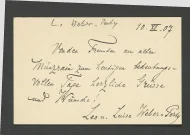 L. Weber-Perty
10. VI. 07
Vondes Freunden an allen
zum heutigen bedeutungs-
vollen Tage herzliche Grüsse
und Wünsche!
Leo u. Luise Weber-Perty